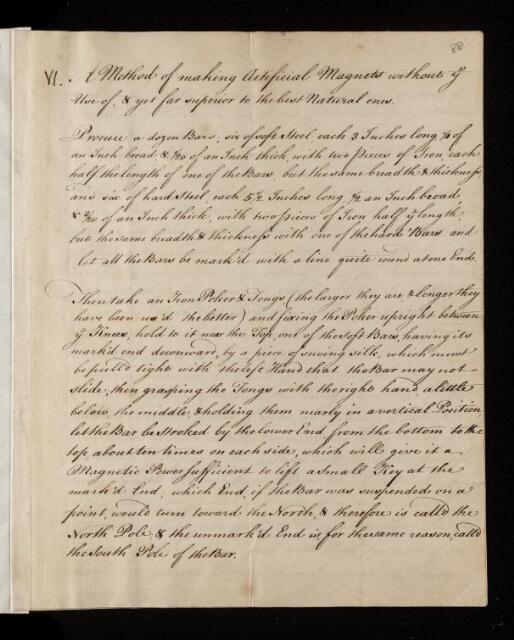 VI. A Method of making Artificial Magnets without yᵉ
Use of, & yet far superior to the best Natural ones.
Procure a dozen Bars, six of soft Steel, each 3 Inches long, ¼ of
an Inch broad, & 1/20 of an Inch thick, with two pieces of Iron, each
half the length of one of the Bars, but the same breadth & thickness,
and six of hard Steel, each 5½ Inches long, ½ an Inch broad,
& 3/20 of an Inch thick, with two pieces of Iron half yᵉ length,
but the same breadth & thickness with one of the hard Bars: and
let all the Bars be mark'd with a line quite round at one End.
Then take an Iron Poker & Tongs (the larger they are, & longer they
have been us'd the better) and fixing the Poker upright between
yᵉ Knees, hold to it near the Top, one of the soft Bars, having its
mark'd end downward, by a piece of sewing silk, which must
be pull'd tight with the left Hand that the Bar may not
slide; then grasping the Tongs with the right hand, a little
below the middle, & holding them nearly in a vertical Position,
let the Bar be stroked by the lower End, from the bottom to the
top, about ten times on each side, which will give it a
Magnetic Power sufficient to lift a small Key at the
mark'd End; which End, if the Bar was suspended on a
point, would turn toward the North, & therefore is call'd the
North Pole, & the unmark'd End is for the same reason, call'd
the South Pole of the Bar.